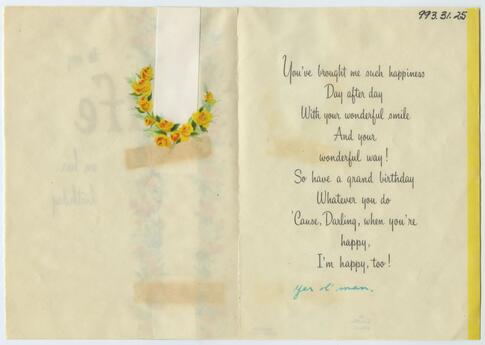 993.31.25
You've brought me such happiness
Day after day
With your wonderful smile
And your
wonderful way!
So have a grand birthday
Whatever you do
'Cause, Darling, when you're
happy,
I'm happy, too!
yer ol' man.
to my
wife
on her
birthday